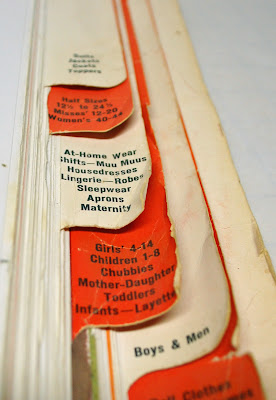 Suits
Jackets
Coats
Toppers
Half Sizes
12½ to 24½
Misses' 12-20
Women's 40-44
At-Home Wear
Shifts—Muu Muus
Housedresses
Lingerie—Robes
Sleepwear
Aprons
Maternity
Girls' 4-14
Children 1-8
Chubbies
Mother-Daughter
Toddlers
Infants—Layette
Boys & Men
Doll Clothes